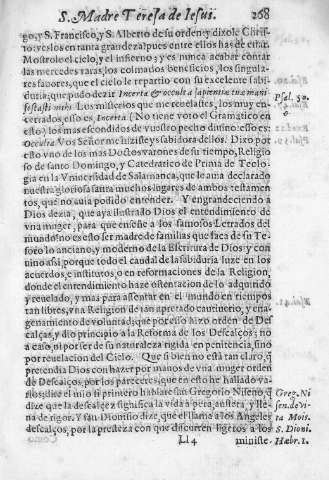 S. Madre Teresa de Iesus. 268
go, y S. Francisco, y S. Alberto de su orden, y dixole Chris-
to: veslos en tanta grandeza? pues entre ellos has de estar.
Mostrole el cielo, y el infierno; y es nunca acabar contar
las mercedes raras, los colmados beneficios, los singula-
res fauores, que el cielo le repartio con su excelente sabi-
duria; que pudo dezir Incerta & occulta sapientiæ tuæ mani-
festasti mihi. Los misterios que me reuelastes, los muy en-
cerrados, esso es, Incerta (No tiene voto el Gramatico en
esto) los mas escondidos de vuestro pecho diuino: esso es:
Occulta Vos Señor me hizistes sabidora dellos. Dixo por
esto vno de los mas Doctos varones de su tiempo, Religio
so de santo Domingo, y Catedratico de Prima de Teolo-
gia en la Vniuersidad de Salamanca, que le auia declarado
nuestra gloriosa santa muchos lugares de ambos testamen
tos, que no auia podido entender. Y engrandeciendo a
Dios dezia, que aya ilustrado Dios el entendimiento de
vna muger, para que enseñe a los famosos Letrados del
mundo: no es esto ser madre de familias que saca de su Te-
soro lo anciano, y moderno de la Escritura de Dios: y con
uino assi, porque todo el caudal de la sabiduria luze en los
acuerdos, e institutos, o en reformaciones de la Religion,
donde el entendimiento haze ostentacion de lo adquirido
y reuelado, y mas para assentar en el mundo en tiempos
tan libres, vna Religion de tan apretado cautiuerio, y ena-
genamiento de voluntad; que por esso hizo orden de Des
calças, y dio principio a la Reforma de los Descalços; no
a caso, ni por ser de su naturaleza rigida en penitencia, sino
por reuelacion del Cielo. Que si bien no està tan claro, q̃
pretendia Dios con hazer por manos de vna muger orden
de Descalços, por los pareceres, que en esto he hallado va-
rios; dire el mio si primero hablare san Gregorio Niseno, q̃
dize que la descalçez significa la vida aspera, austera, y lle-
na de rigor. Y san Dionisio dize, que el llama a los Angeles
descalços, por la presteza con que discurren ligeros a los
Ll 4 ministe-
Psal. 50.
Greg. Ni
sen. de vi-
ta Mois.
S. Dioni.
Hæbr. 1.